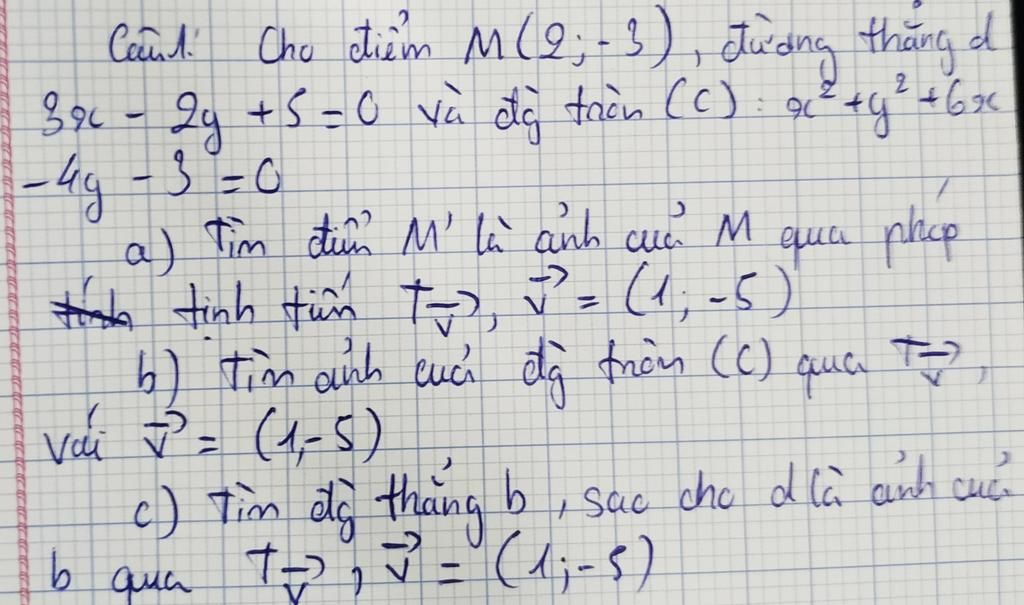 Câu1: Cho điểm M(2;-3), đường thẳng d
3x - 2y + 5 = 0 và đg tròn (C): x² + y² + 6x
- 4y - 3 = 0
a) Tìm điểm M' là ảnh của M qua phép
tịnh tiến T_v⃗, v⃗ = (1;-5)
b) Tìm ảnh của đg tròn (C) qua T_v⃗,
với v⃗ = (1,-5)
c) Tìm đg thẳng b, sao cho d là ảnh của
b qua T_v⃗, v⃗ = (1;-5)